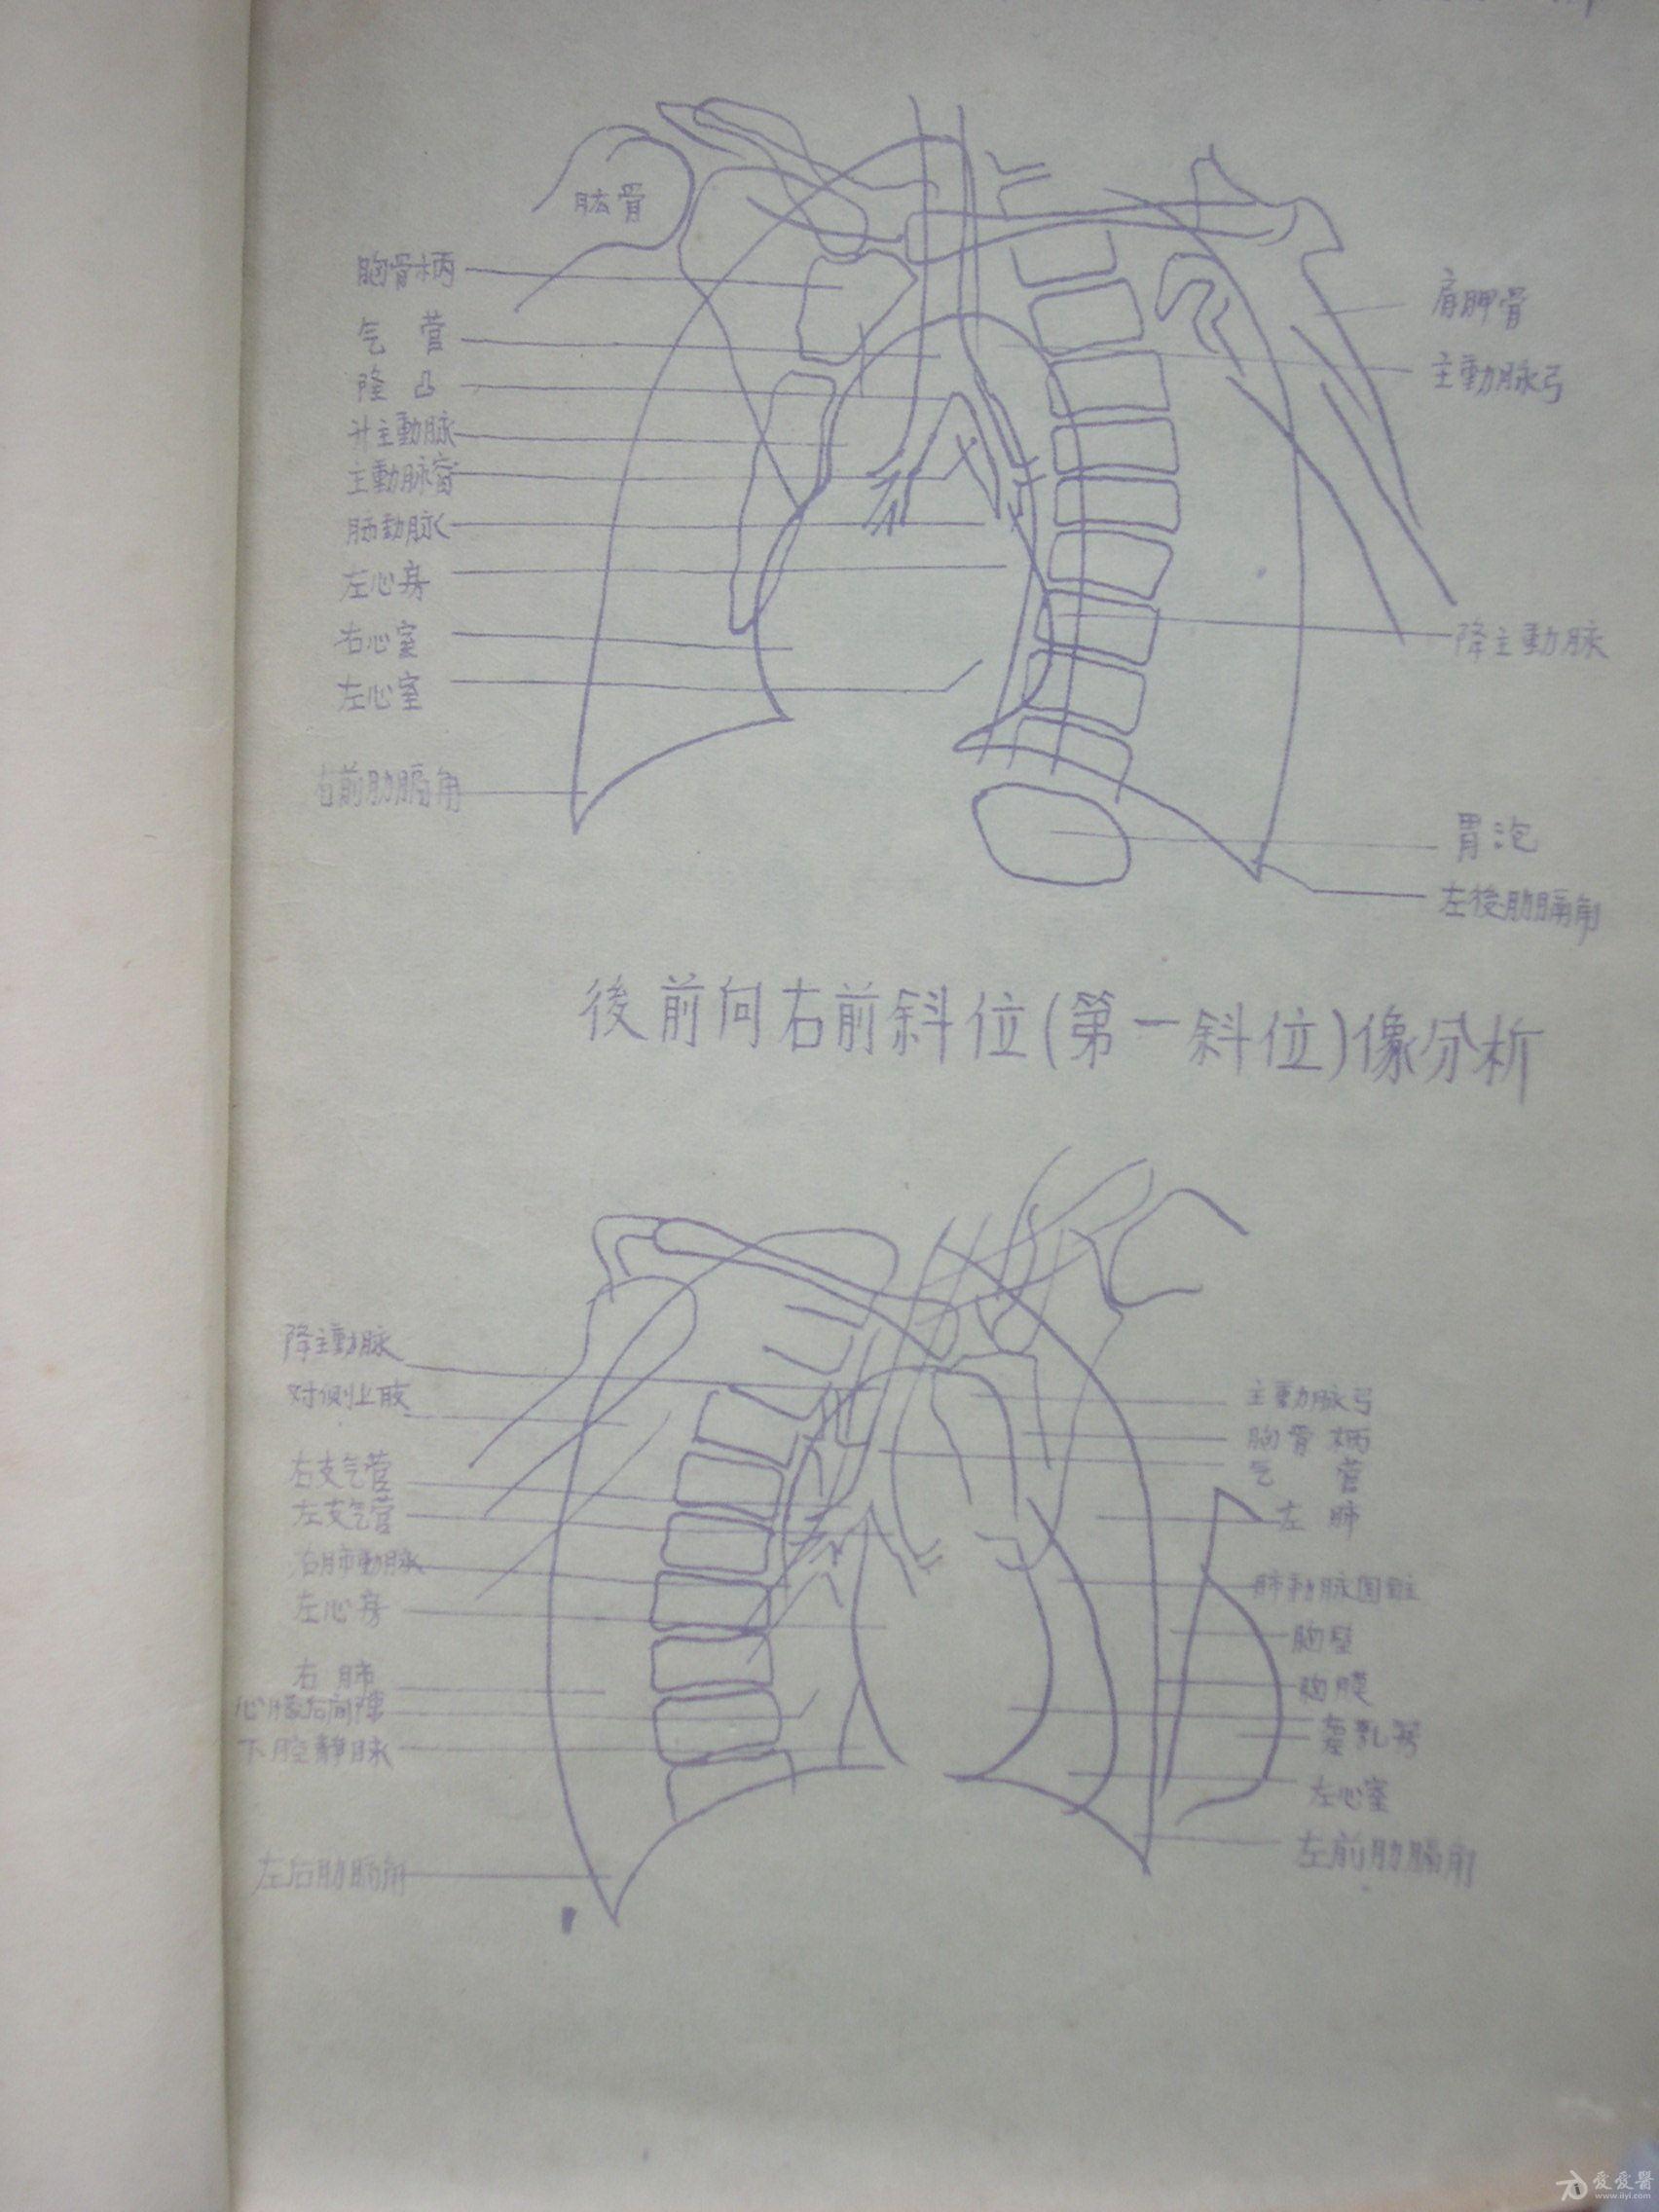 肱骨
胸骨柄
气 管
隆 凸
升主動脉
主動脉窗
肺動脉
左心房
右心室
左心室
右前肋膈角
肩胛骨
主動脉弓
降主動脉
胃泡
左後肋膈角
後前向右前斜位(第一斜位)像分析
降主動脉
对侧上肢
右支气管
左支气管
右肺動脉
左心房
右肺
心臟后间隙
下腔静脉
左后肋膈角
主動脉弓
胸骨柄
气 管
左 肺
肺動脉圆锥
胸壁
胸膜
乳房
左心室
左前肋膈角
爱爱醫
www.iiyi.com